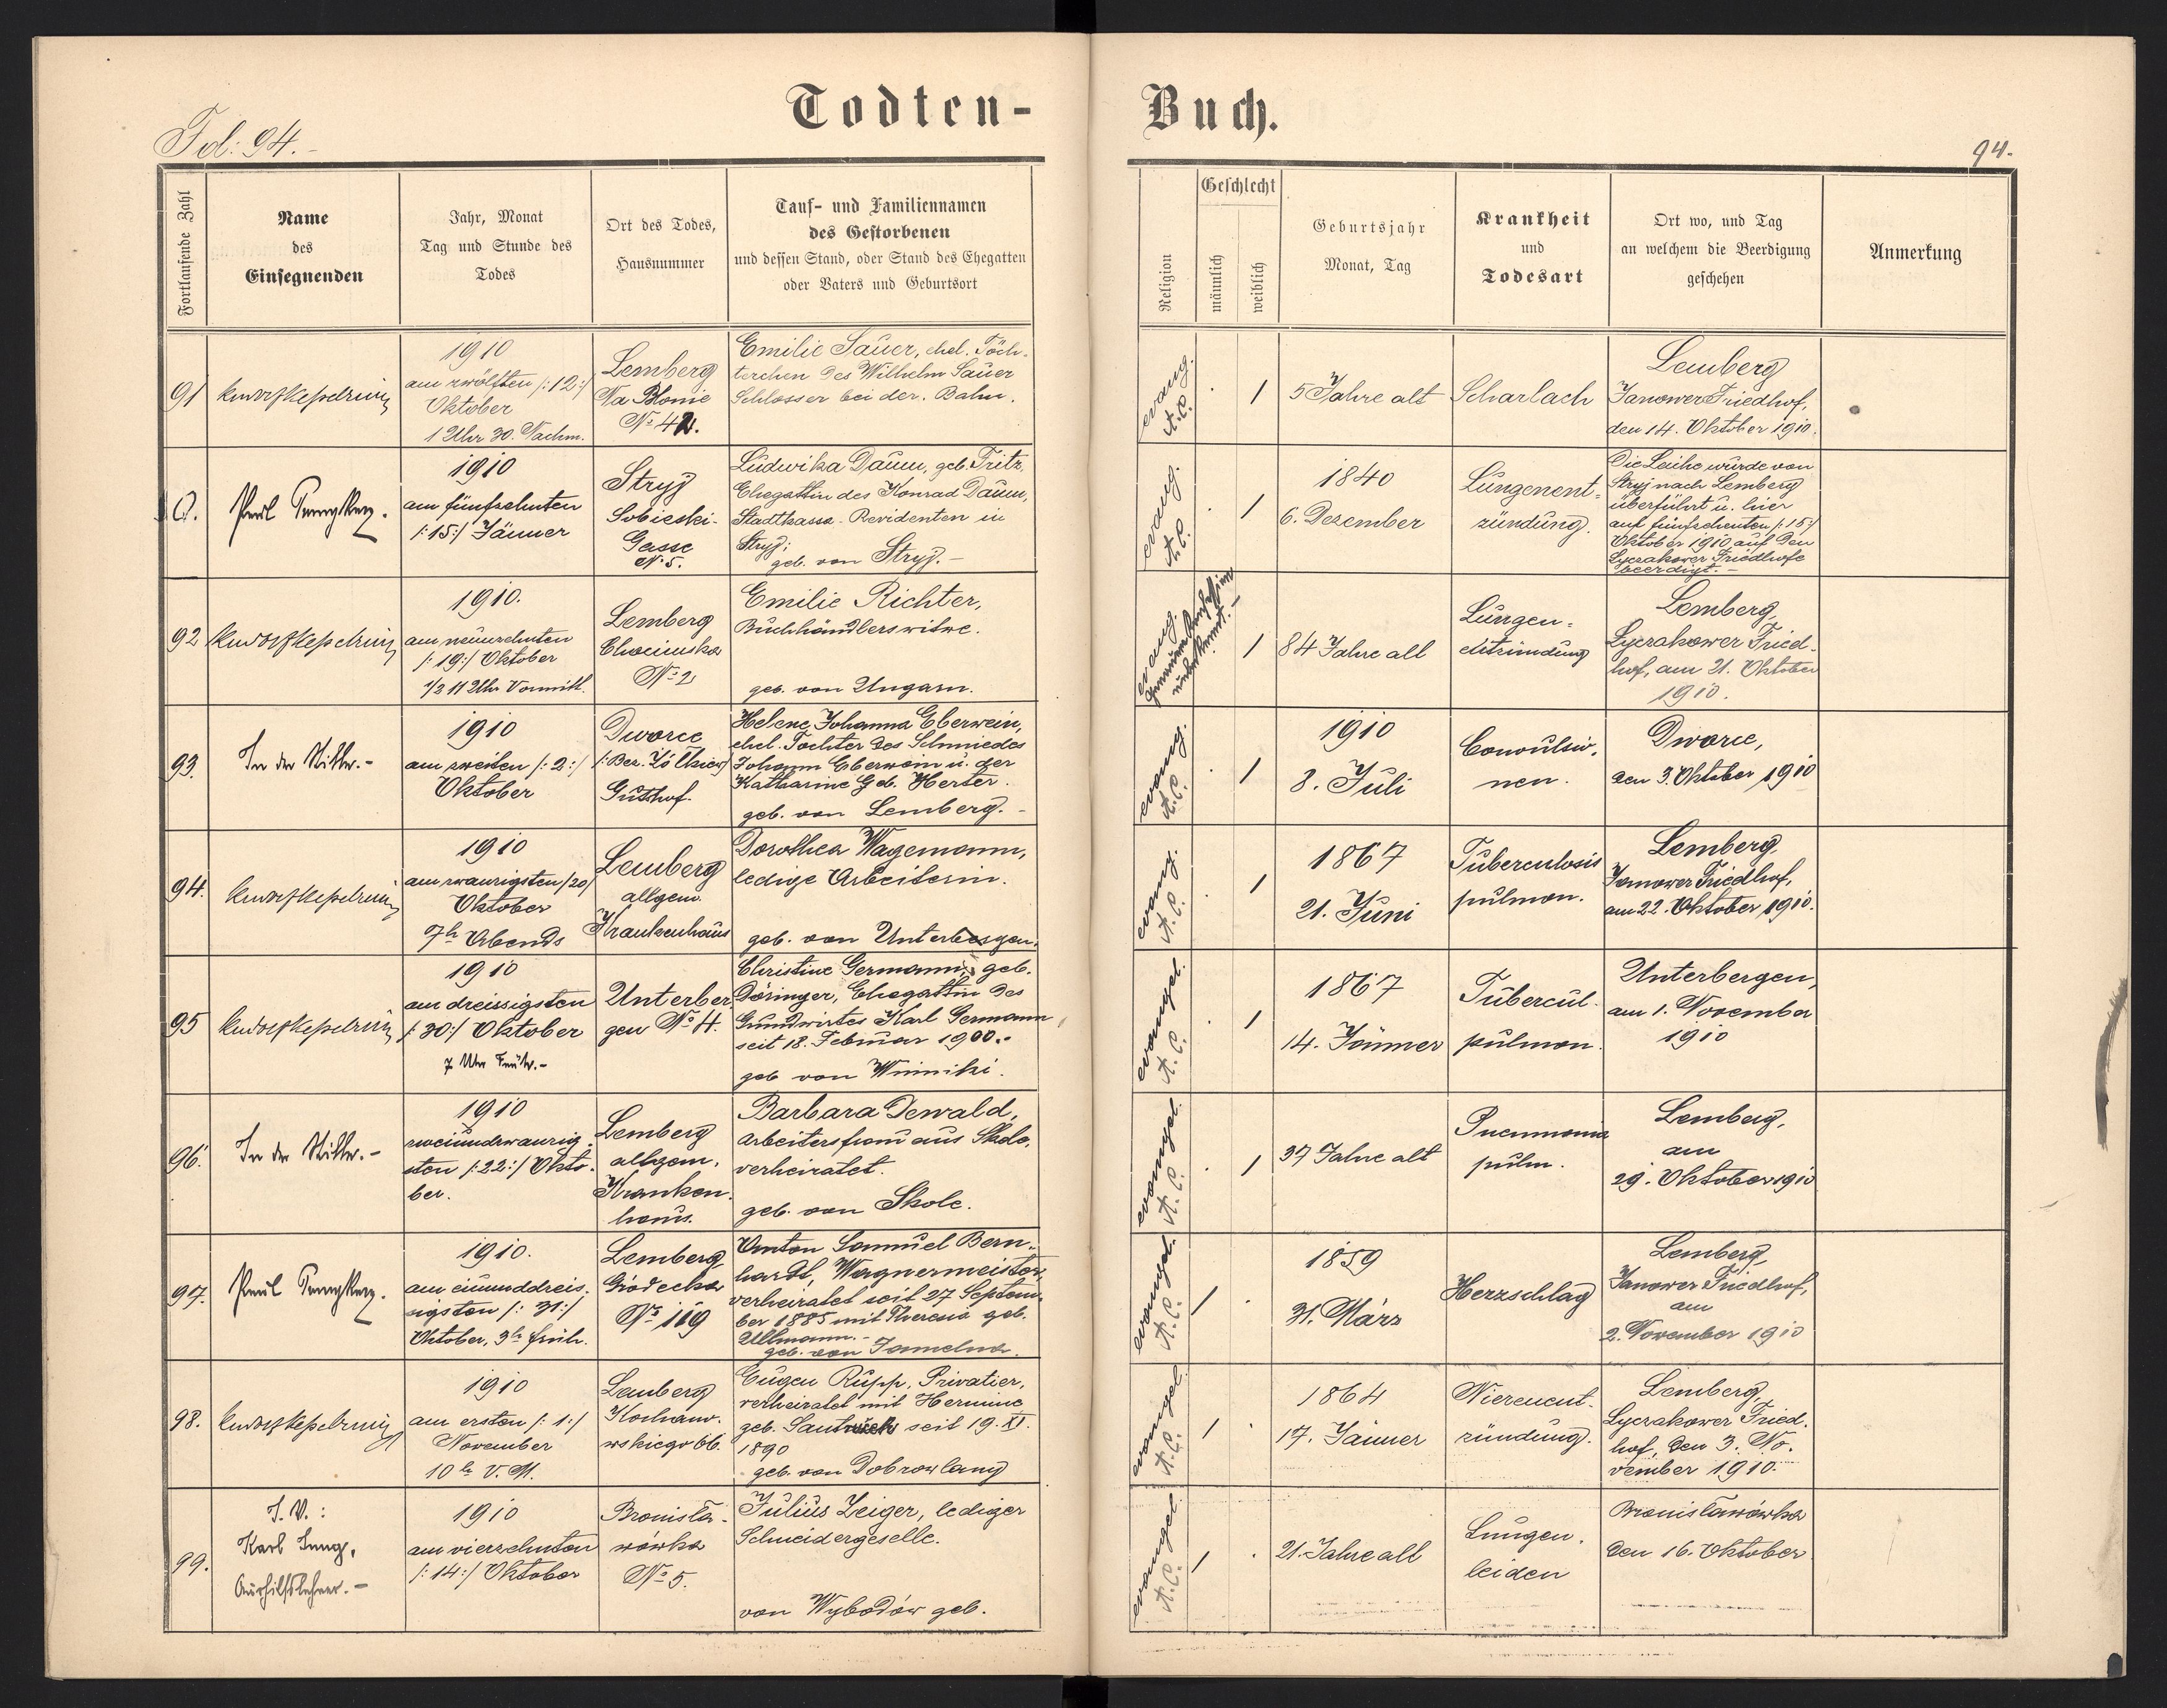 Todten-
Buch.
Fol: 94.-
94.
Fortlaufende Zahl
Name
des
Einsegnenden
Jahr, Monat
Tag und Stunde des
Todes
Ort des Todes,
Hausnummer
Tauf- und Familiennamen
des Gestorbenen
und dessen Stand, oder Stand des Ehegatten
oder Vaters und Geburtsort
Religion
Geschlecht
männlich
weiblich
Geburtsjahr
Monat, Tag
Krankheit
und
Todesart
Ort wo, und Tag
an welchem die Beerdigung
geschehen
Anmerkung
91
1910
am zwölften /:12:/
Oktober
1 Uhr 30. Nachm.
Lemberg
Na Błonie
No 42.
Emilie Sauer, ehel. Töch-
terchen des Wilhelm Sauer
Schlosser bei der. Bahn.
evang.
A.C.
1
5 Jahre alt
Scharlach
Lemberg
Janower Friedhof,
den 14. Oktober 1910.
O.
Paul
1910
am fünfzehnten
/:15:/ Jänner
Stryj
Sobieski-
Gasse
No 5.
Ludwika Daum, geb. Fritz,
Ehegattin des Konrad Daum,
Stadtkassa-Revidenten in
Stryj;
geb. von Stryj.-
evang.
A.C.
1
1840
6. Dezember
Lungenent-
zündung.
Die Leihe wurde von
Stryj nach Lemberg
überführt u. hier
auf fünfzehnten /:15:/
Oktober 1910 auf den
Lyczakower Friedhofe
beerdigt.-
92
1910.
am neunzehnten
/:19:/ Oktober
1/2 11 Uhr Vormitt.
Lemberg
Chocimska
No 2
Emilie Richter,
Buchhändlerswitwe.
geb. von Ungarn.
evang.
unbekannt.-
1
84 Jahre all
Lungen-
Lemberg,
Lyczakower Fried-
hof, am 21. Oktober
1910.
93.
In der Mitte.-
1910
am zweiten /:2:/
Oktober
Dworce
/:Bez. Żółkiew/
Gutshof.
Helene Johanna Eberwein,
ehel. Tochter des Schmiedes
Johann Eberwein u. der
Katharine geb. Herter.
geb. von Lemberg.-
evang.
A.C.
1
1910
8. Juli
Convulsio-
nen.
Dworce,
den 3. Oktober 1910
94.
1910
am zwanzigsten /20/
Oktober
7h Abends
Lemberg
allgem.
Krankenhaus
Dorothea Wagemann,
ledige Arbeiterin.
geb. von Unterbergen.
evang.
A.C.
1
1867
21. Juni
Tuberculosis
pulmon.
Lemberg,
Janower Friedhof,
am 22. Oktober 1910.
95
1910
am dreissigsten
/:30:/ Oktober
7 Uhr Früh.-
Unterber
gen No 4.
Christine Germann, geb.
Döringer, Ehegattin des
Grundwirtes Karl Germann
seit 18. Februar 1900.-
geb von Winniki.
evangel.
A.C.
1
1867
14. Jänner
Tubercul.
pulmon.
Unterbergen,
am 1. November
1910
96.
In der Mitte.-
1910
zweiundzwanzig-
sten /:22:/ Okto-
ber.
Lemberg
allgem.
Kranken-
haus.
Barbara Dewald,
Arbeitersfrau aus Skole,
verheiratet.
geb. von Skole.
evangel.
A.C.
1
37 Jahre alt
Pneumonia
pulm.
Lemberg,
am
29. Oktober 1910
97.
Paul
1910.
am einunddreis-
sigsten /:31:/
Oktober, 3h früh.
Lemberg,
Gródecka
No 119
Anton Samuel Bern-
hardt, Wagnermeister,
verheiratet seit 27 Septem-
ber 1885 mit Theresia geb.
Ullmann.-
geb. von Jamelna.
evangel.
A.C.
1
1859
31. März
Herzschlag
Lemberg,
Janower Friedhof,
am
2. November 1910
98.
1910
am ersten /:1:/
November
10h V.M.
Lemberg
Kochanow-
wskiego 66.
Eugen Rupp, Privatier,
verheiratet mit Hermine
geb. seit 19. XI.
1890
geb. von Dobrowlany
evangel.
A.C.
1
1864
17. Jänner
Nierenent-
zündung.
Lemberg,
Lyczakower Fried-
hof, den 3. No-
vember 1910.
99.
I.V.:
Karl Jung,
Aushilfslehrer.-
1910
am vierzehnten
/:14:/ Oktober
Bronisła-
wówka
No 5.
Julius Zeiger, lediger
Schneidergeselle.
von Wybodów geb.
evangel.
A.C.
1
21. Jahre all
Lungen-
leiden
Bronisławówka
den 16. Oktober